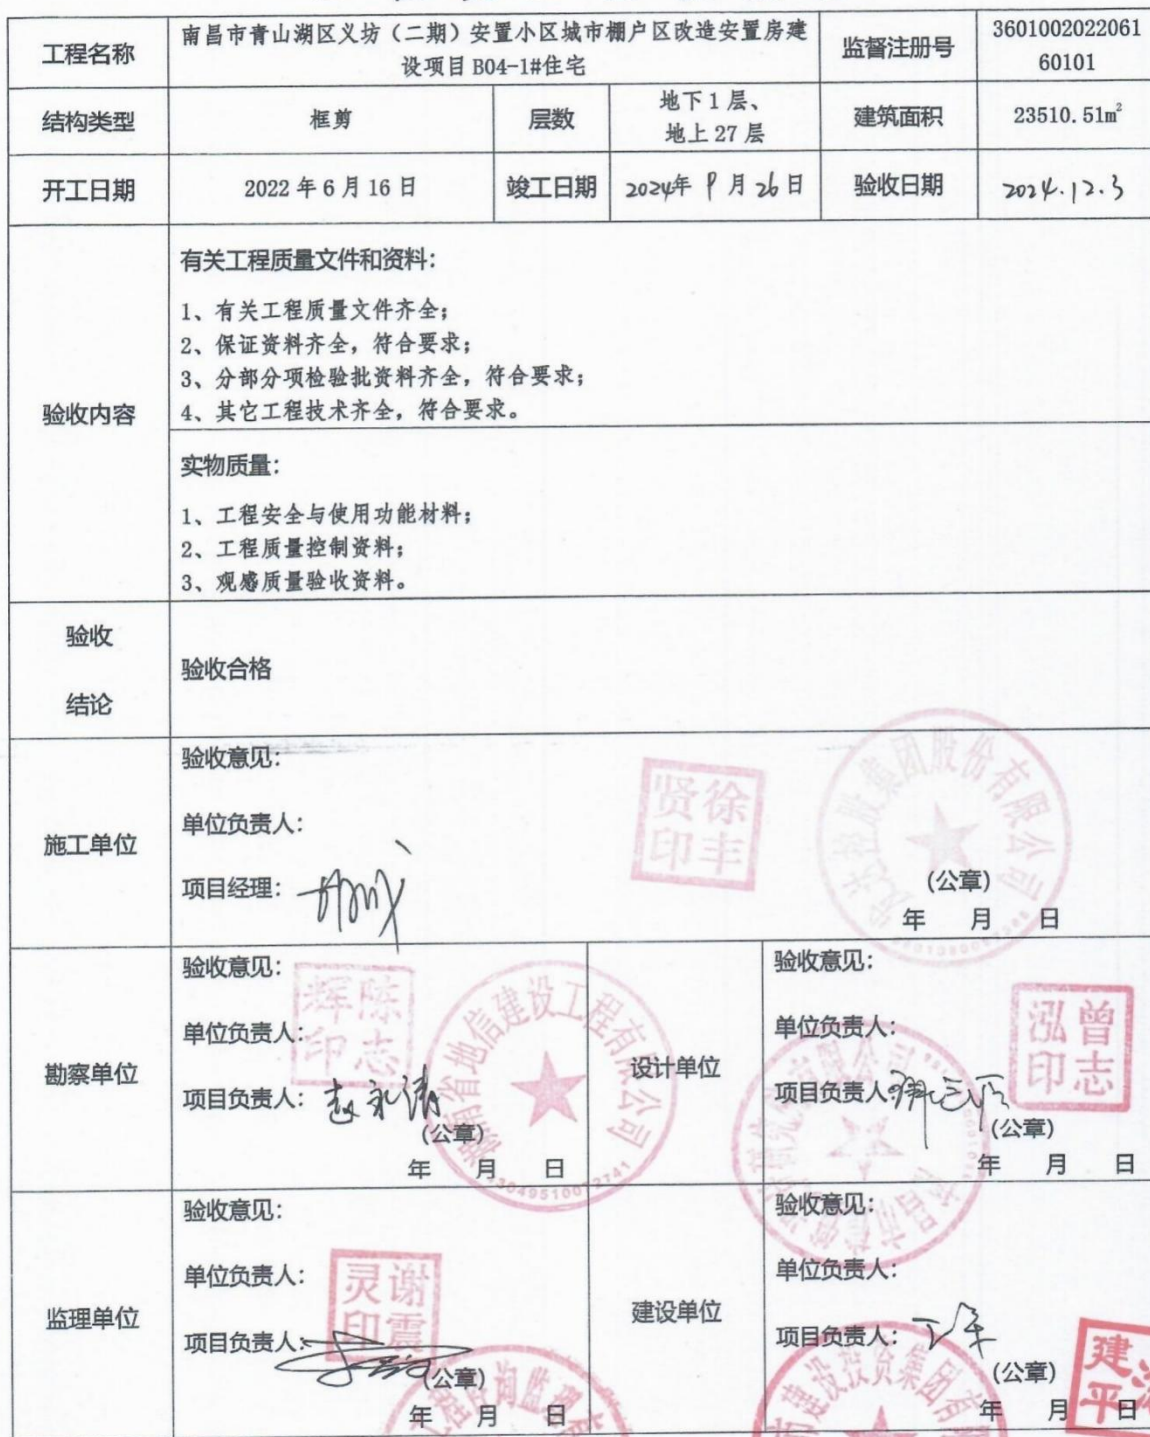 工程名称
南昌市青山湖区义坊（二期）安置小区城市棚户区改造安置房建
设项目 B04-1#住宅
监督注册号
3601002022061
60101
结构类型
框剪
层数
地下 1 层、
地上 27 层
建筑面积
23510.51m²
开工日期
2022 年 6 月 16 日
竣工日期
2024年 9 月 26 日
验收日期
2024.12.3
验收内容
有关工程质量文件和资料：
1、有关工程质量文件齐全；
2、保证资料齐全，符合要求；
3、分部分项检验批资料齐全，符合要求；
4、其它工程技术齐全，符合要求。
实物质量：
1、工程安全与使用功能材料；
2、工程质量控制资料；
3、观感质量验收资料。
验收
结论
验收合格
施工单位
验收意见：
单位负责人：
项目经理：
徐丰
贤印
控股集团股份有限公司
（公章）
年 月 日
勘察单位
验收意见：
单位负责人：
陈志
辉印
项目负责人：
省地信建设工程有限公司
（公章）
年 月 日
设计单位
验收意见：
单位负责人：
曾志
泓印
项目负责人：
（公章）
年 月 日
监理单位
验收意见：
单位负责人：
谢震
灵印
项目负责人：
工程咨询监理
（公章）
年 月 日
建设单位
验收意见：
单位负责人：
项目负责人：
建设投资集团有
（公章）
建
平
年 月 日